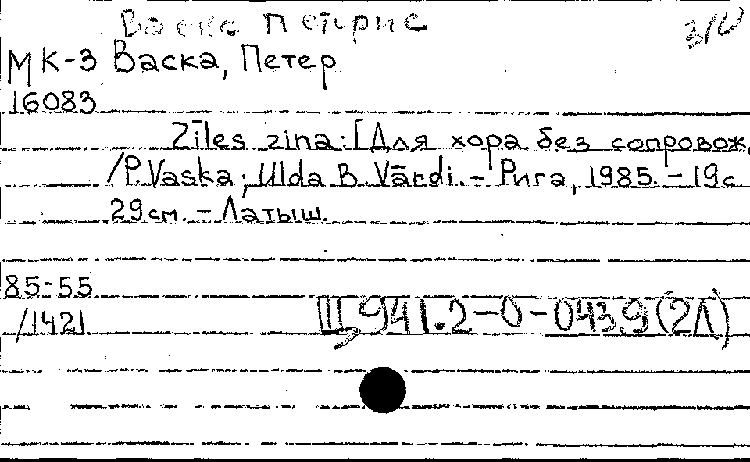 Васкс Петрис
МК-3 Васка, Петер
16083
Zīles ziņa: [Для хора без сопровож.
/P. Vaska; Ulda B. Vārdi. - Рига, 1985. - 19с
29см. - Латыш.
85-55
/1421
Щ941.2-0-043.9(2Л)